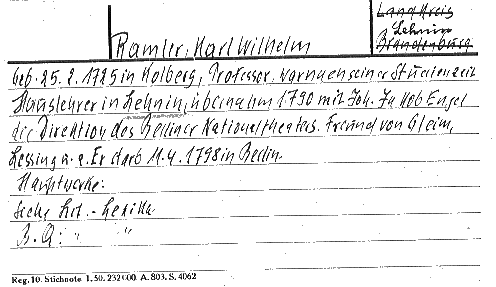 Landkreis
Lehnin
Brandenburg
Ramler, Karl Wilhelm
geb. 25. 2. 1725 in Kolberg, Professor, war während seiner Studienzeit
Hauslehrer in Lehnin, übernahm 1790 mit Joh. Jakob Engel
die Direktion des Berliner Nationaltheaters. Freund von Gleim,
Lessing u. a. Er starb 11. 4. 1798 in Berlin.
Hauptwerke:
Siehe Lit. - Lexika
B. Q: " "
Reg. 10. Stichnote 1. 50. 232000. A. 803. S. 4062